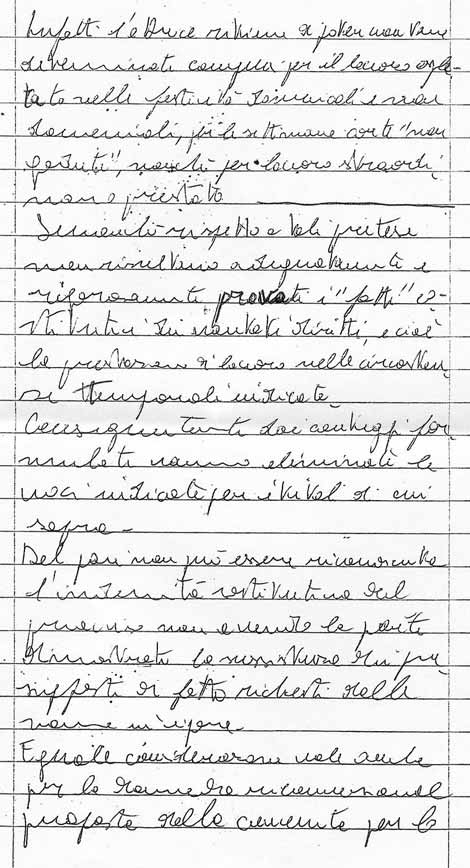 Infatti l'attrice ritiene di poter non
compensi per il lavoro
tato nelle festività domenicali e non
domenicali, per le settimane corte "non
godute", nonché per lavoro straordi
nario prestato
Senonché rispetto a tali pretese
non risultano adeguatamente e
rigorosamente provati i "fatti" co-
stitutivi dei vantati diritti, e cioè
la prestazione di lavoro nelle circostan
ze temporali indicate.
Conseguentemente dai conteggi for
mulati vanno eliminate le
voci indicate per i titoli di cui
sopra -
Del pari non può essere riconosciuta
l'indennità sostitutiva del
preavviso non avendo la parte
dimostrato la sussistenza dei pre
supposti di fatto richiesti dalle
norme in vigore.
Eguale considerazione vale anche
per la domanda riconvenzionale
proposta dalla convenuta per la